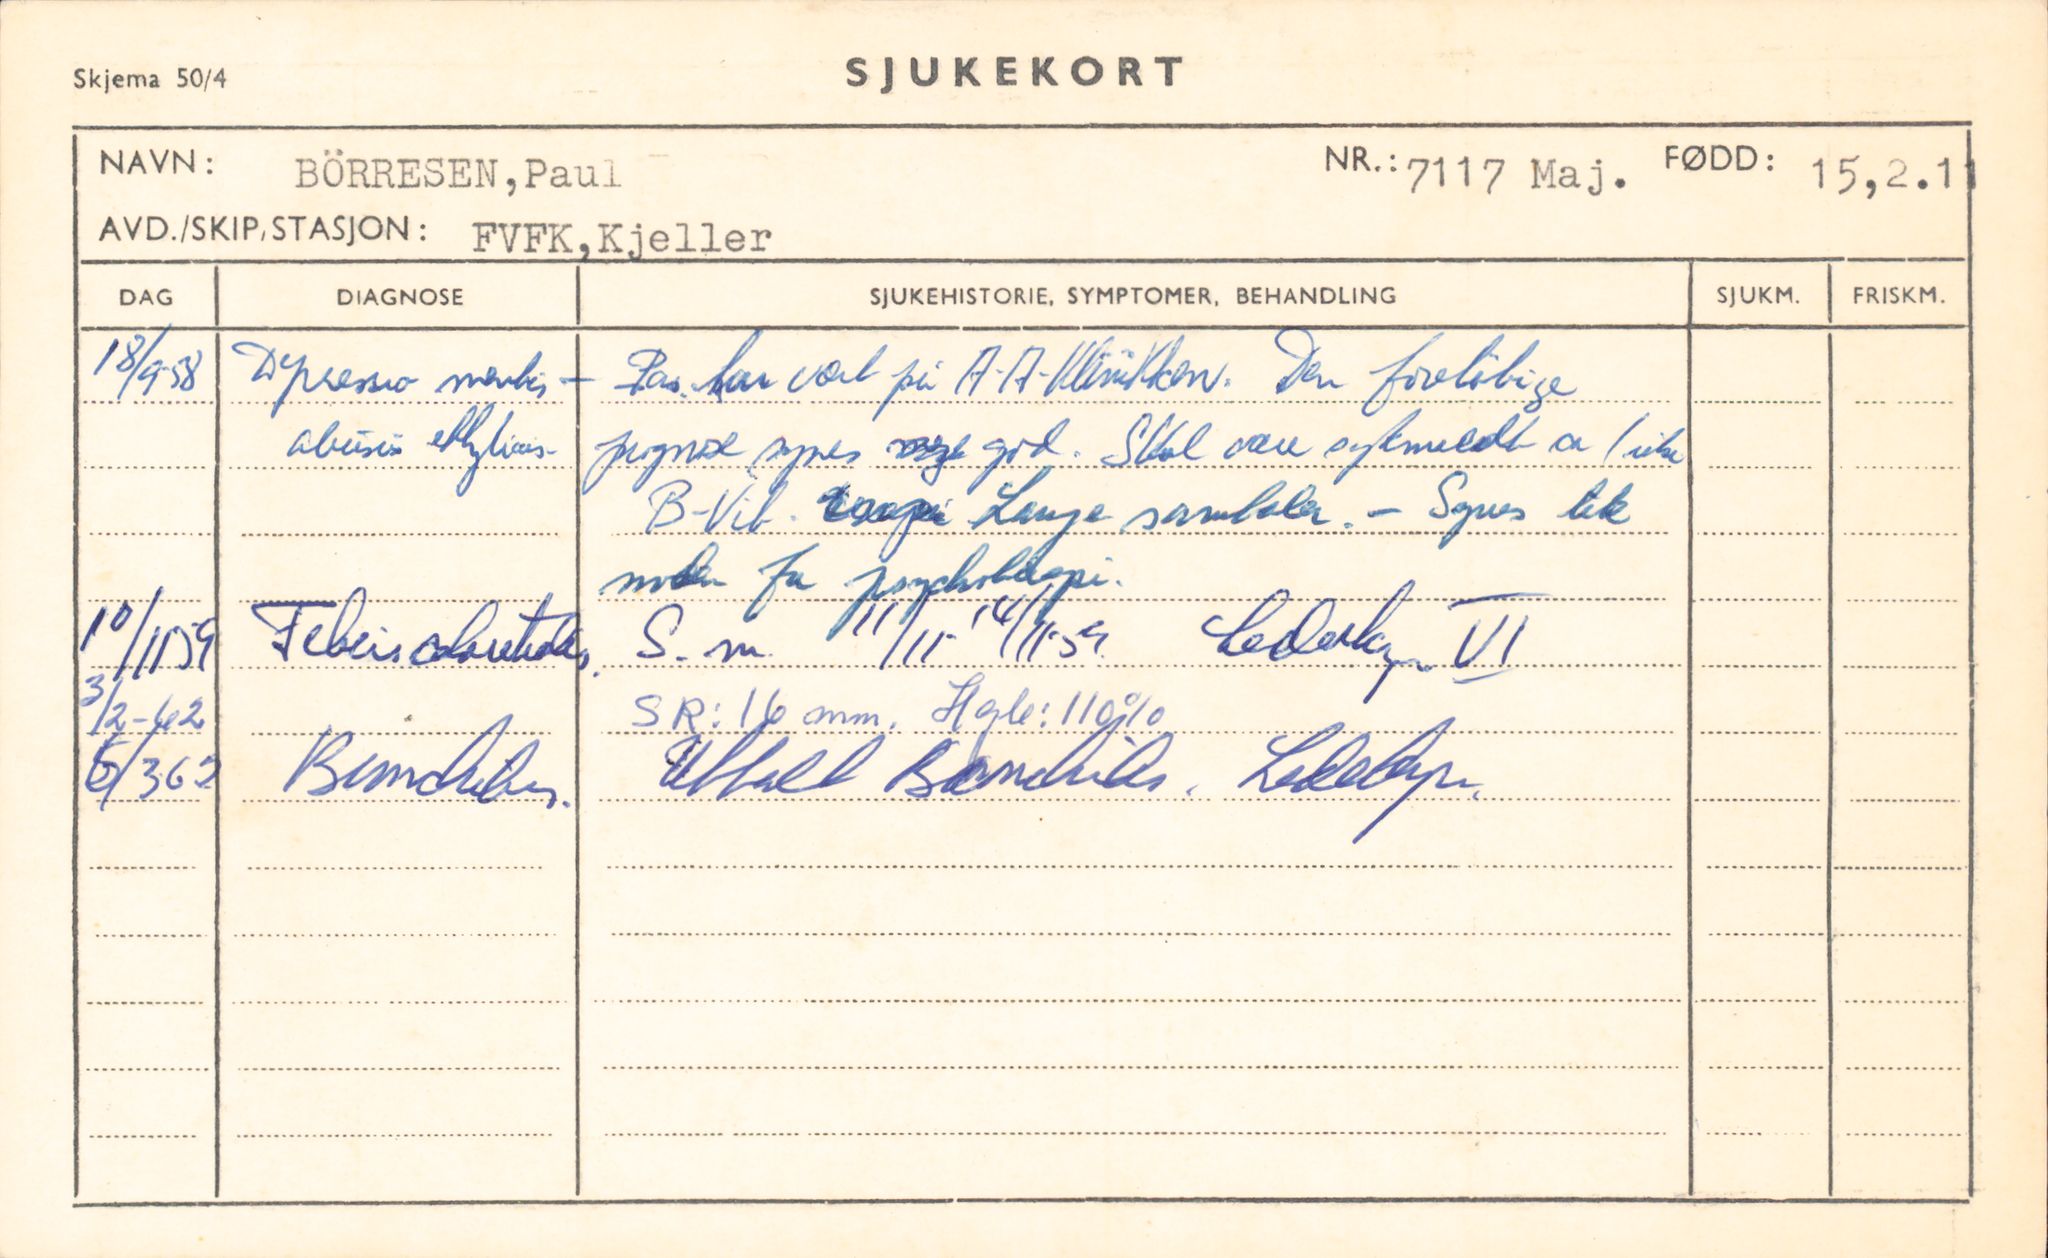 Skjema 50/4
SJUKEKORT
NAVN: BÖRRESEN, Paul NR.: 7117 Maj. FØDD: 15,2.11
AVD./SKIP, STASJON: FVFK, Kjeller
DAG DIAGNOSE SJUKEHISTORIE, SYMPTOMER, BEHANDLING SJUKM. FRISKM.
18/9-58 Depressio mentis - Pas. har vært på A-A-Klinikken. Den foreløbige
abusus ethylicus - prognose synes god. Skal være sykmeldt ca 1 uke
B-Vit. Lange samtaler. - Synes
moden for psychoterapi.
10/11 59 Febris S. m. 11/11-14/11-59. Ledertop VI
3/2-62 SR: 16 mm. Hgb: 110%
6/3 62 Bronchitis. Uttalt Bronchitis.